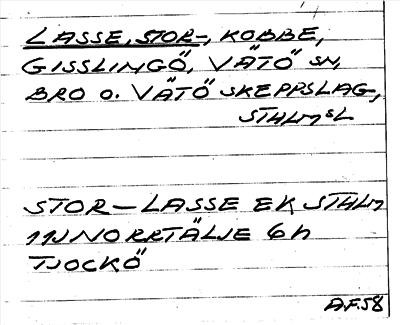 LASSE, STOR-, KOBBE,
GISSLINGÖ, VÄTÖ SN,
BRO O. VÄTÖ SKEPPSLAG,
STHLMSL
STOR-LASSE EK STHLM
11J NORRTÄLJE 6h
TJOCKÖ
AF.58